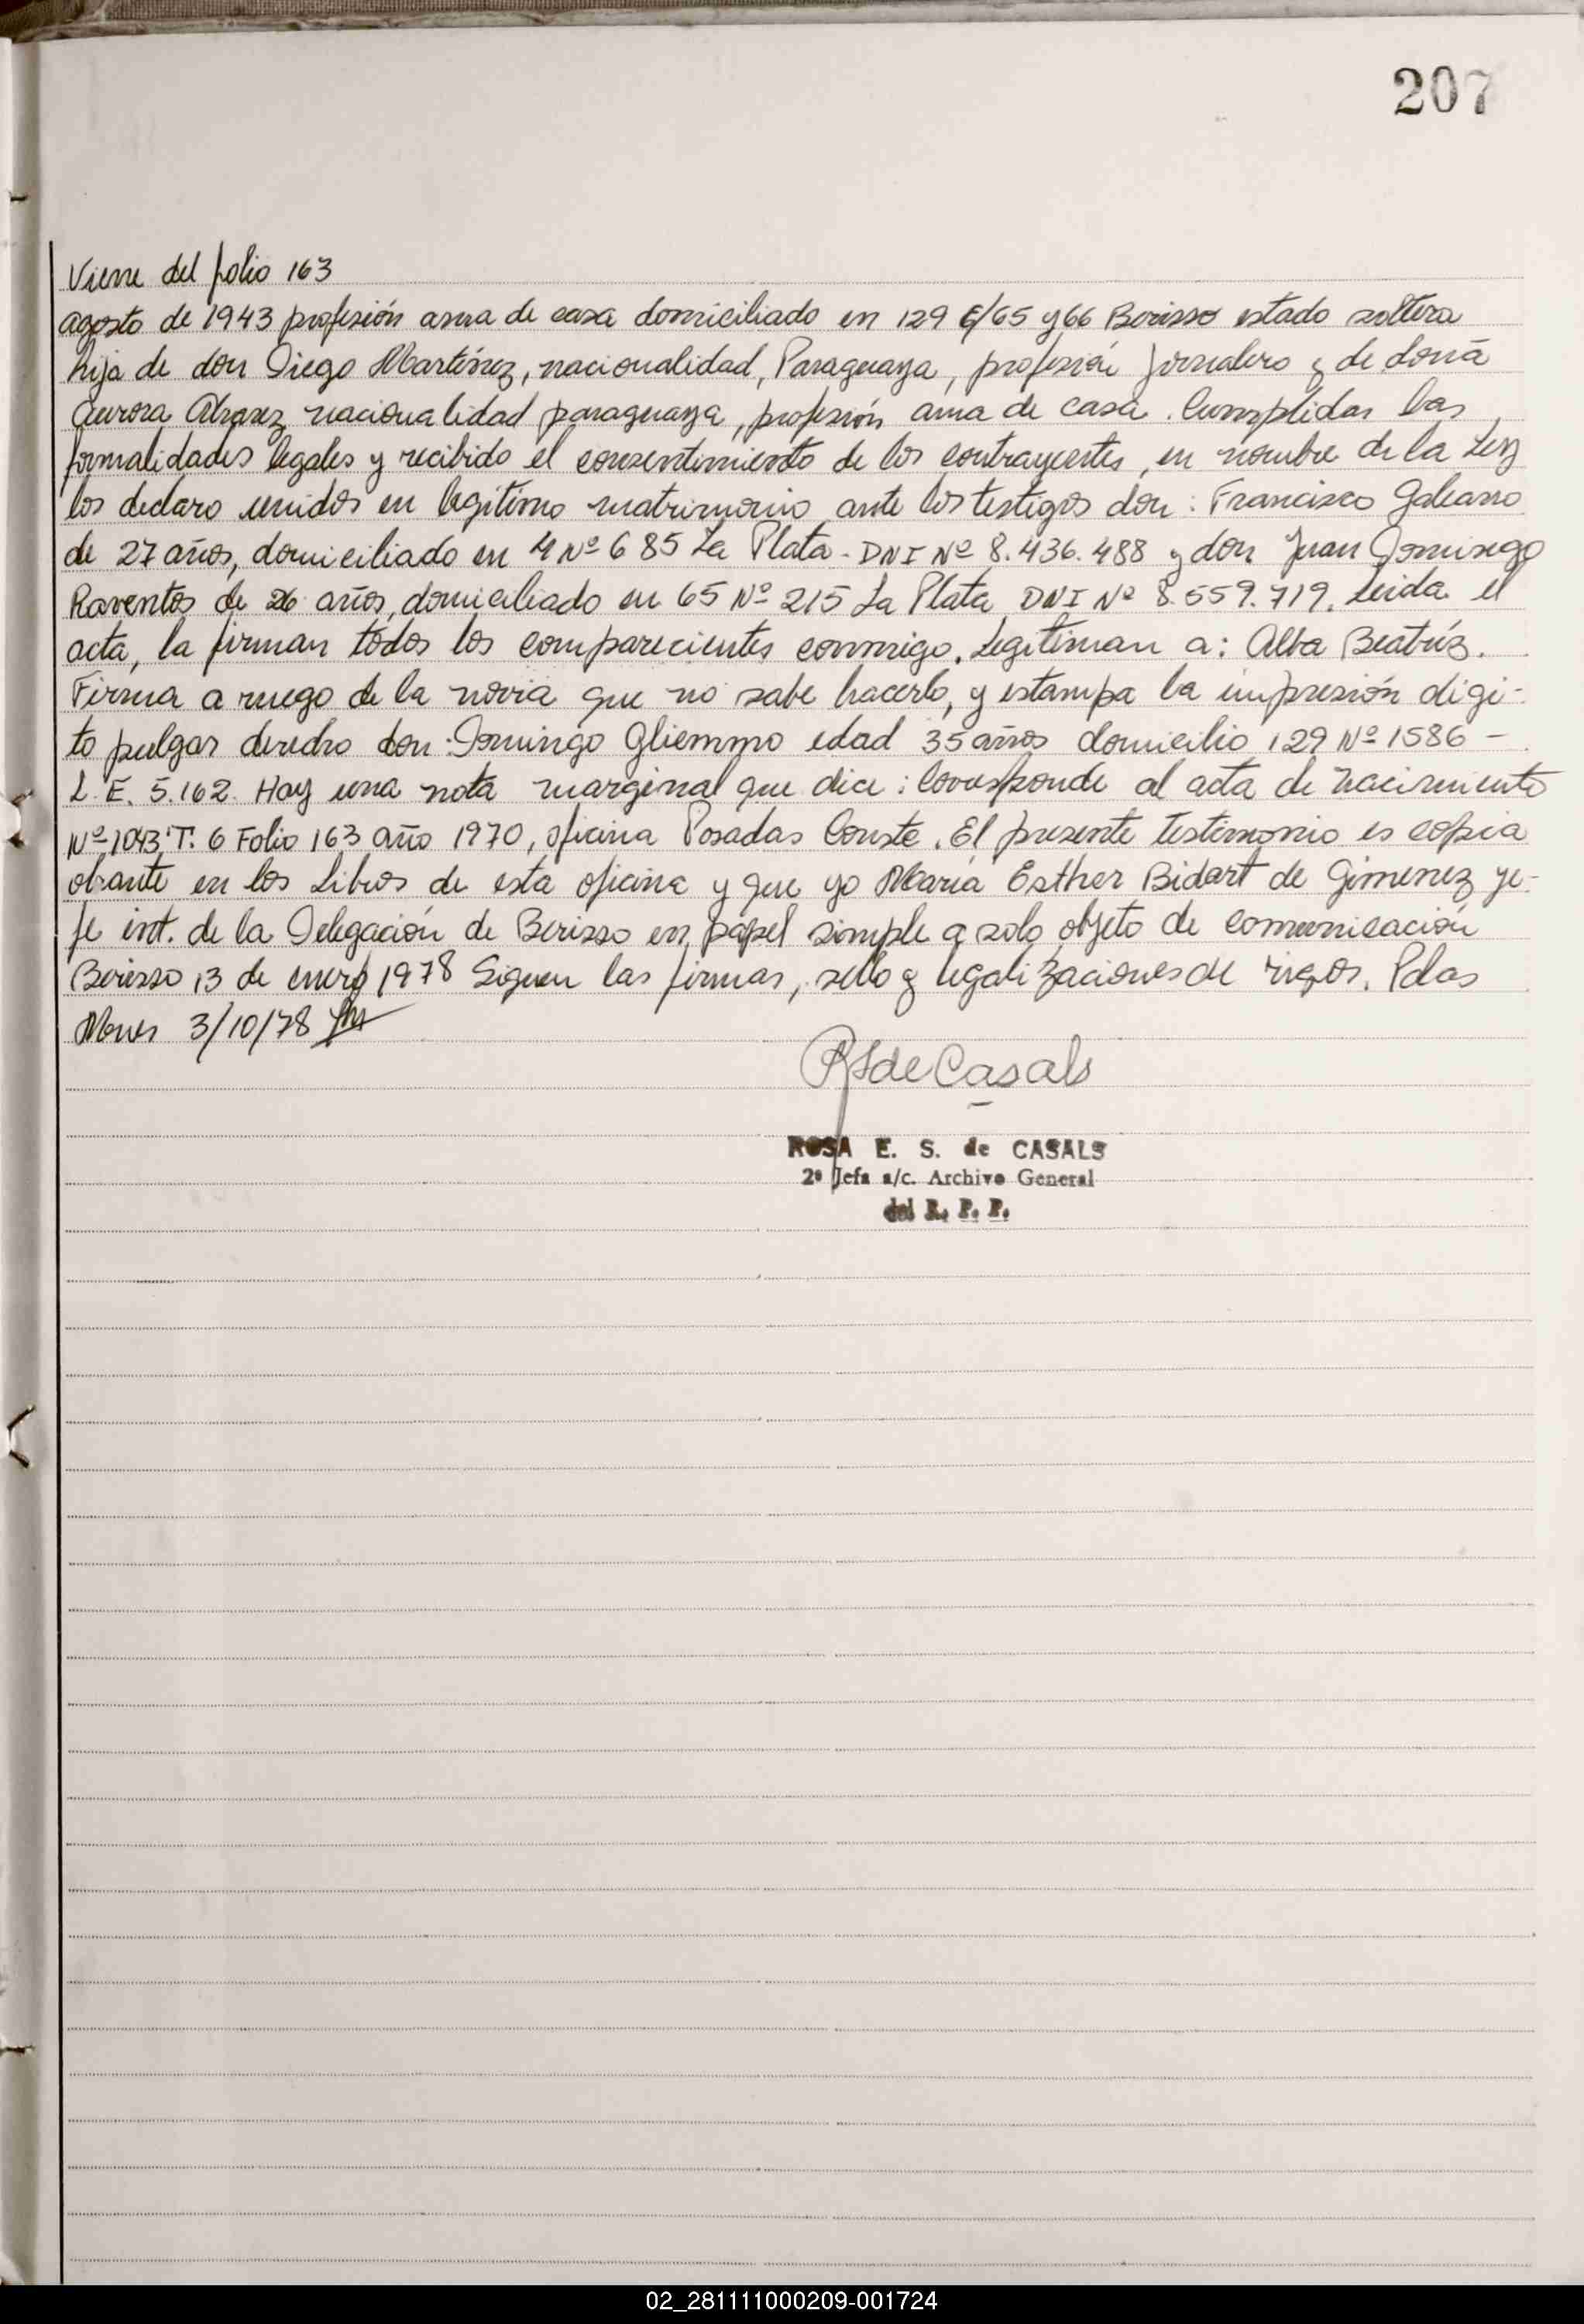 207
Viene del folio 163
agosto de 1943 profesión ama de casa domiciliado en 129 e/65 y 66 Berisso estado soltera
hija de don Diego Martínez, nacionalidad, Paraguaya, profesión Jornalero y de doná
Aurora Alvarez nacionalidad paraguaya, profesión ama de casa. Cumplidas las
formalidades legales y recibido el consentimiento de los contrayentes, en nombre de la Ley
los declaro unidos en legítimo matrimonio ante los testigos don: Francisco Galeano
de 27 años, domiciliado en 4 Nº 685 La Plata - DNI Nº 8.436.488 y don Juan Domingo
Raventos de 26 años, domiciliado en 65 Nº 215 La Plata DNI Nº 8.559.719. Leida el
acta, la firman todos los comparecientes conmigo. Legitiman a: Alba Beatríz.
Firma a ruego de la novia que no sabe hacerlo, y estampa la impresión digi-
to pulgar derecho don: Domingo Gliemmo edad 35 años domicilio 129 Nº 1586 -
L.E. 5.162. Hay una nota marginal que dice: Corresponde al acta de nacimiento
Nº 1043 T: 6 Folio 163 año 1970, oficina Posadas Conste. El presente Testimonio es copia
obrante en los Libros de esta oficina y que yo María Esther Bidart de Gimenez je-
fe int. de la Delegación de Berisso en papel simple a solo objeto de comunicación
Berisso 13 de enero 1978 Siguen las firmas, sello y legalizaciones de rigor. Pdas
Mnes 3/10/78
RSdeCasals
ROSA E. S. de CASALS
2ª Jefa a/c. Archivo General
del R. P. P.
02_281111000209-001724